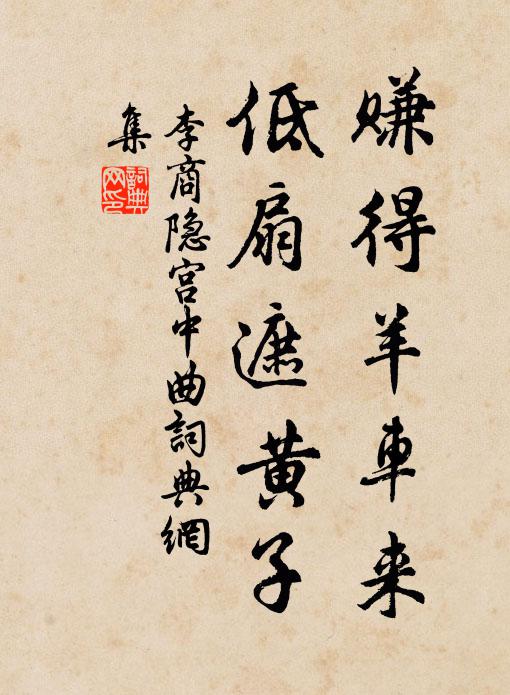 赚得羊車来
低扇遮黄子
李商隐宫中曲詞典網
集
詞典
网印